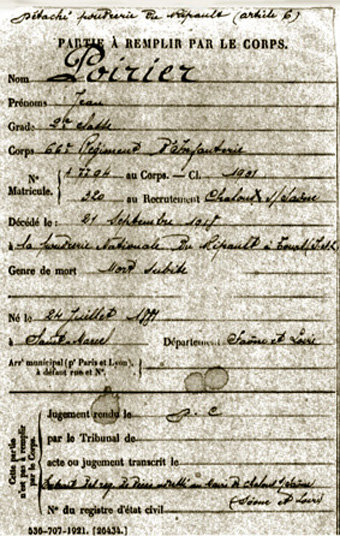 Détaché poudrerie du Ripault (article 6)
PARTIE À REMPLIR PAR LE CORPS.
Nom Poirier
Prénoms Jean
Grade 2e classe
Corps 66e Régiment d'Infanterie
N° Matricule. 17794 au Corps. — Cl. 1901
320 au Recrutement Chalon s/Saône
Décédé le : 21 Septembre 1915
à la poudrerie Nationale du Ripault à
Genre de mort Mort subite
Né le 24 Juillet 1881
à Saint Marcel Département Saône et Loire
Arrt municipal (pr Paris et Lyon), à défaut rue et N°.
Cette partie n'est pas à remplir par le Corps.
Jugement rendu le
par le Tribunal de
acte ou jugement transcrit le
de Chalon s/Saône
(Saône et Loire)
N° du registre d'état civil
536-707-1921. [26434.]